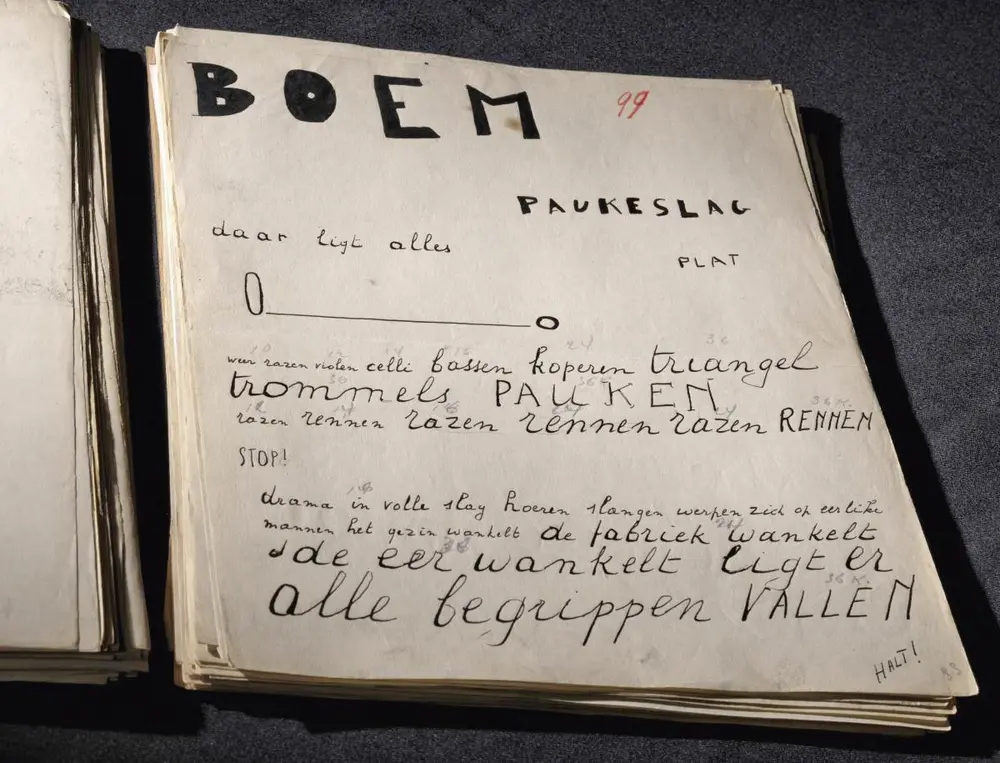 BOEM 99
PAUKESLAG
daar ligt alles
PLAT
O_______________o
weer razen violen celli bassen koperen triangel
trommels PAUKEN
razen rennen razen rennen razen RENNEN
STOP!
drama in volle slag hoeren slangen werpen zich op eerlike
mannen het gezin wankelt de fabriek wankelt
de eer wankelt ligt er
alle begrippen VALLEN
HALT!